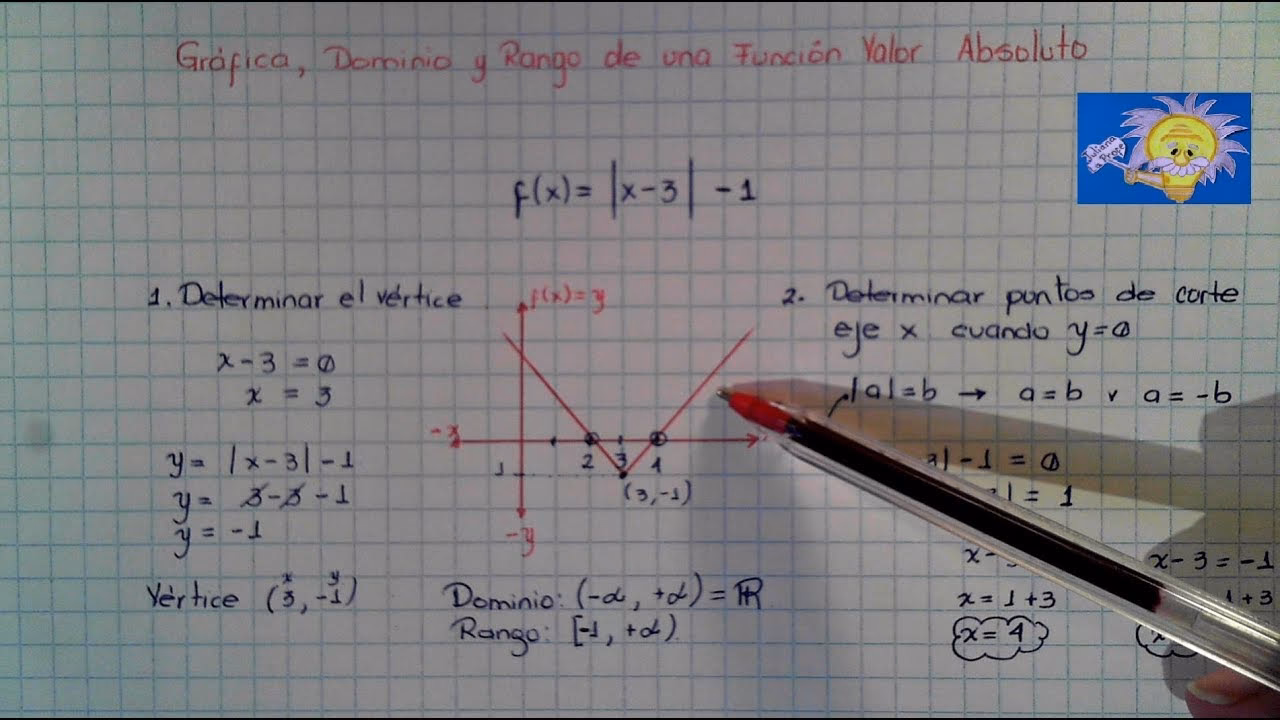 Gráfica, Dominio y Rango de una Función Valor Absoluto
Juliana la Profe
f(x)= |x-3| -1
1. Determinar el vértice
x-3 =0
x = 3
y= |x-3|-1
y= 3-3-1
y= -1
x y
Vértice (3,-1)
f(x)=y
-x
2 3 4
1
(3,-1)
-y
Dominio: (-∞, +∞) = ℝ
Rango: [-1, +∞)
2. Determinar puntos de corte
eje x cuando y=0
|a|=b → a=b v a=-b
3|-1 = 0
| = 1
x-
x-3=-1
x=1+3
1+3
x=4
x